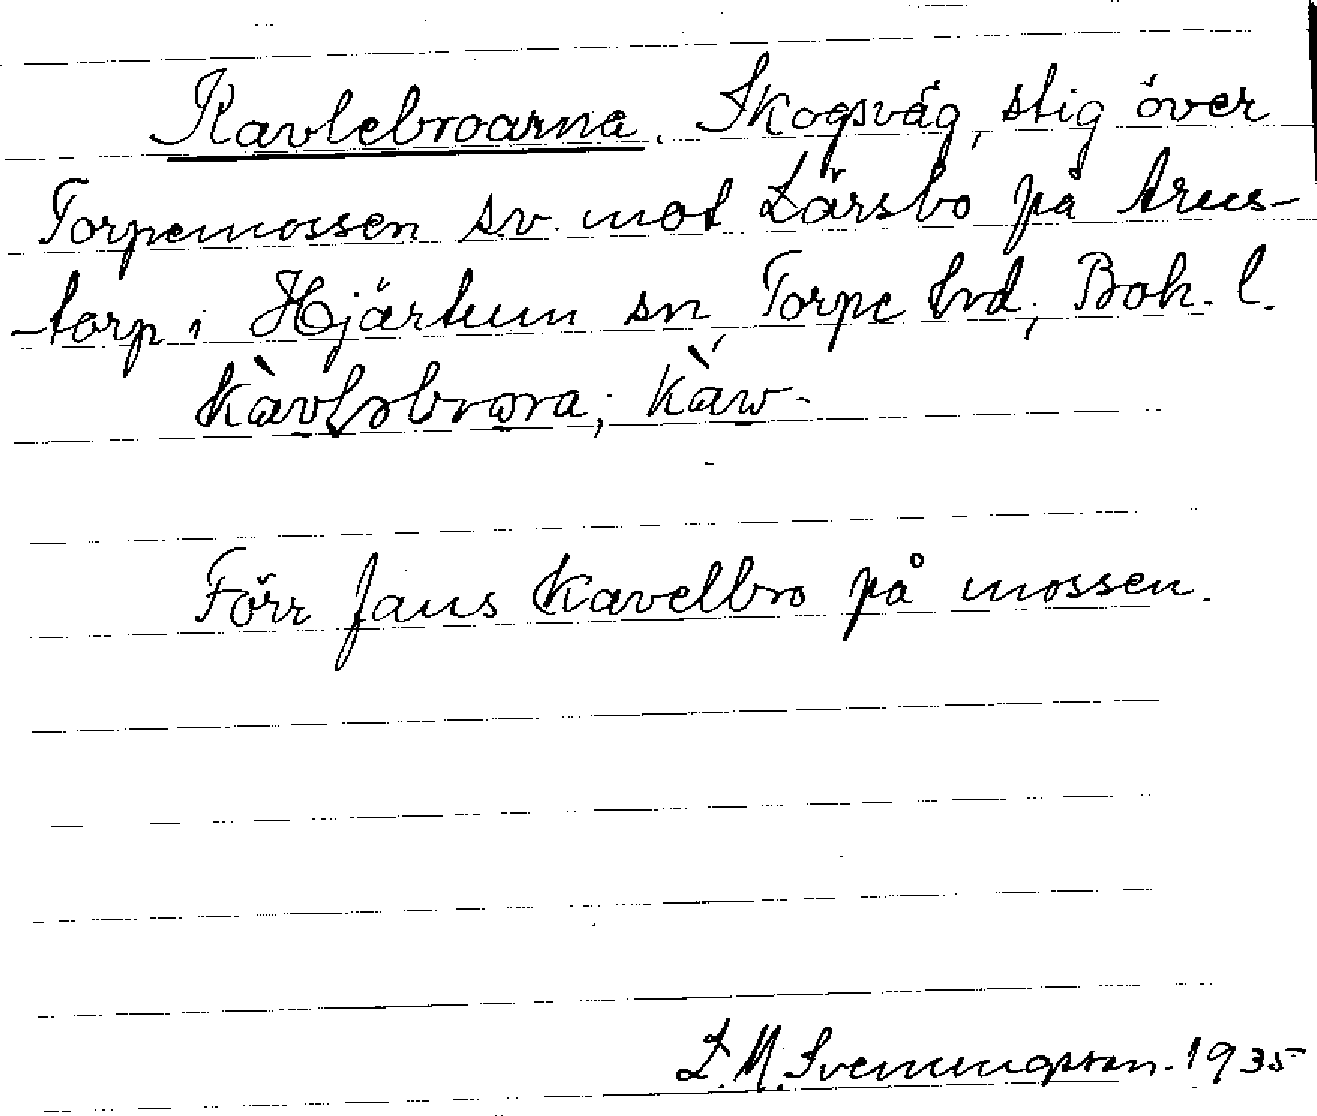 Kavlebroarna. Skogsväg, stig över
Torpemossen sv. mot Lärsbo på Arus-
torp i Hjärtum sn, Torpe hd, Boh. l.
kàvləbrora; kàw-
Förr fans kavelbro på mossen.
L. M. Svenungsson. 1935